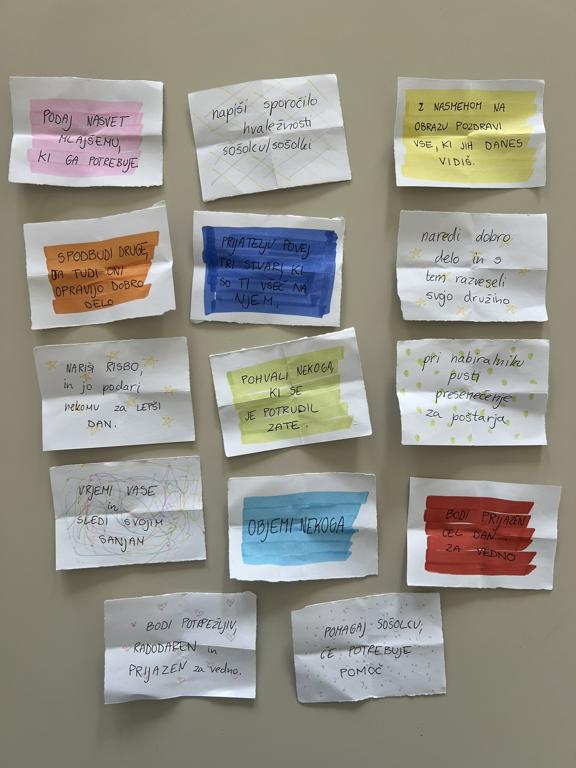 PODAJ NASVET
MLAJŠEMU,
KI GA POTREBUJE
napiši sporočilo
hvaležnosti
sošolcu/sošolki
Z NASMEHOM NA
OBRAZU POZDRAVI
VSE, KI JIH DANES
VIDIŠ.
SPODBUDI DRUGE,
DA TUDI ONI
OPRAVIJO DOBRO
DELO
PRIJATELJU POVEJ
TRI STVARI KI
SO TI VŠEČ NA
NJEM.
naredi dobro
delo in s
tem razveseli
svojo družino
NARIŠI RISBO,
in jo podari
nekomu za LEPŠI
DAN.
POHVALI NEKOGA,
KI SE
JE POTRUDIL
ZATE.
pri nabiralniku
pusti
presenečenje
za poštarja
VRJEMI VASE
in
SLEDI SVOJIM
SANJAM
OBJEMI NEKOGA
BODI PRIJAZEN
CEL DAN...
ZA VEDNO
BODI POTRPEŽLJIV,
RADODAREN in
PRIJAZEN za vedno.
POMAGAJ SOŠOLCU,
ČE POTREBUJE
POMOČ